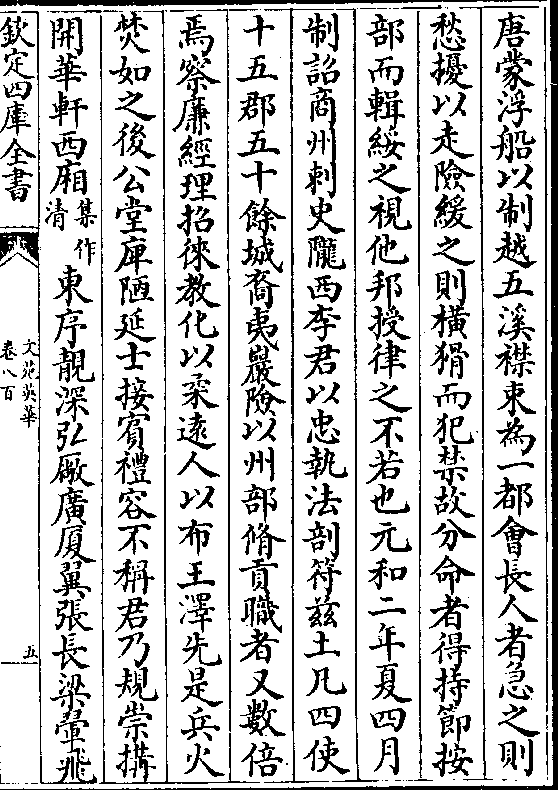 唐蒙浮船以制越五溪襟束為一都會長人者急之則
愁擾以走險緩之則橫猾而犯禁故分命者得持節按
部而輯綏之視他邦授律之不若也元和二年夏四月
制詔商州刺史隴西李君以忠執法剖符茲土凡四使
十五郡五十餘城裔夷巖險以州部脩貢職者又數倍
焉察廉經理招徠教化以柔遠人以布王澤先是兵火
焚如之後公堂庳陋延士接賓禮容不稱君乃規崇搆
開華軒西廂集作清東序靚深弘厰廣厦翼張長梁翬飛
欽定四庫全書
文苑英華
卷八百
五